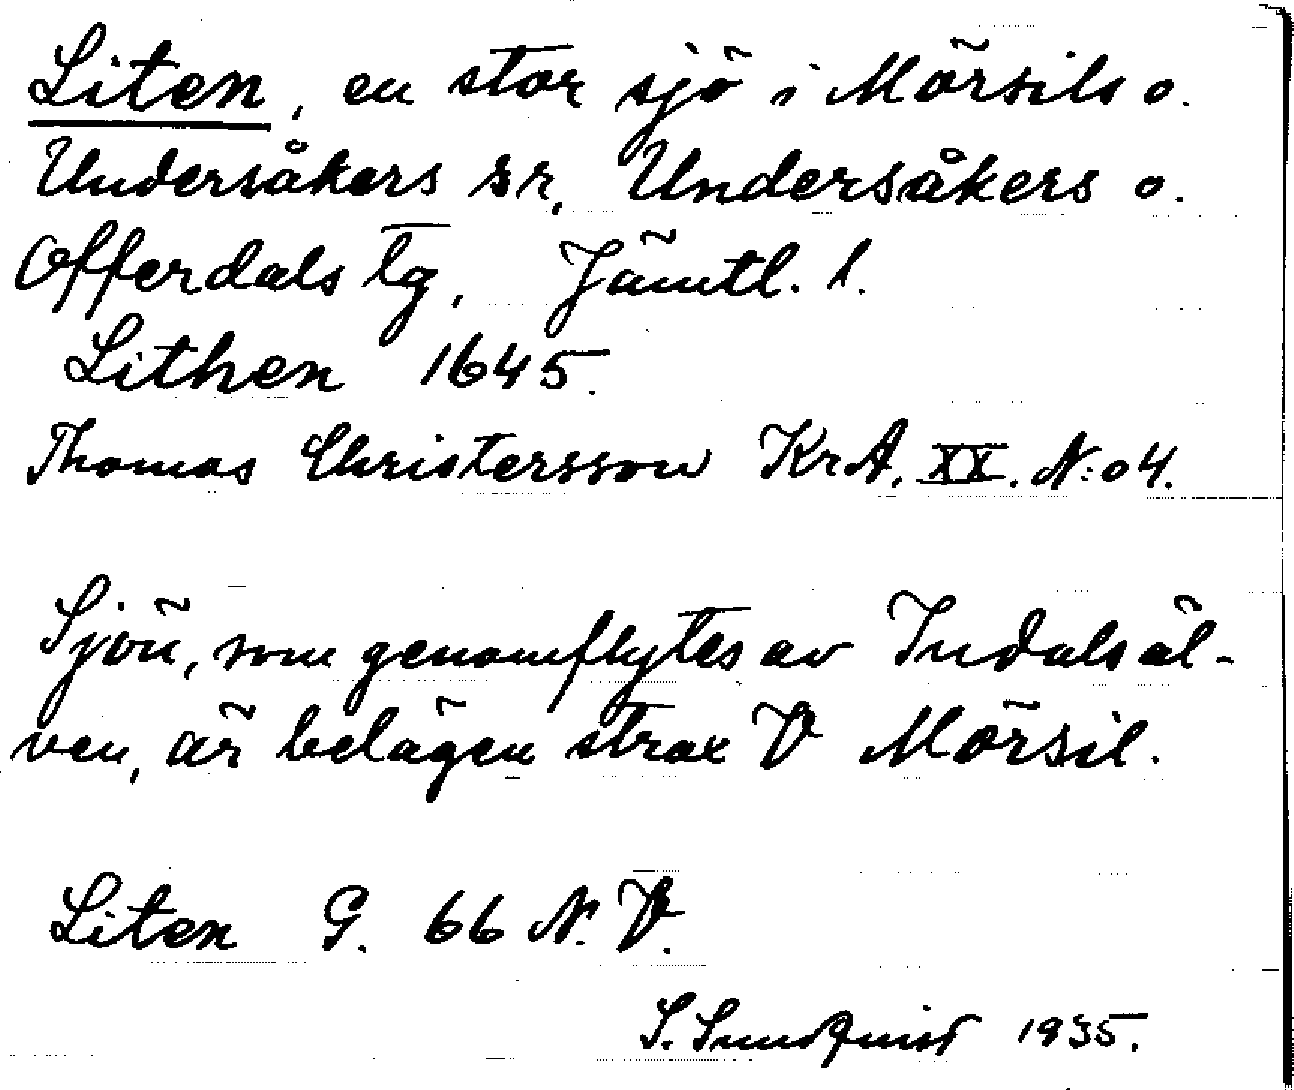 Liten, en stor sjö i Mörsils o.
Undersåkers sr, Undersåkers o.
Offerdals tg, Jämtl. l.
Lithen 1645.
Thomas Christersson KrA. XX. N:o 4.
Sjön, som genomflytes av Indalsäl-
ven, är belägen strax V Mörsil.
Liten G. 66 N. V.
S. Sundquist 1935.